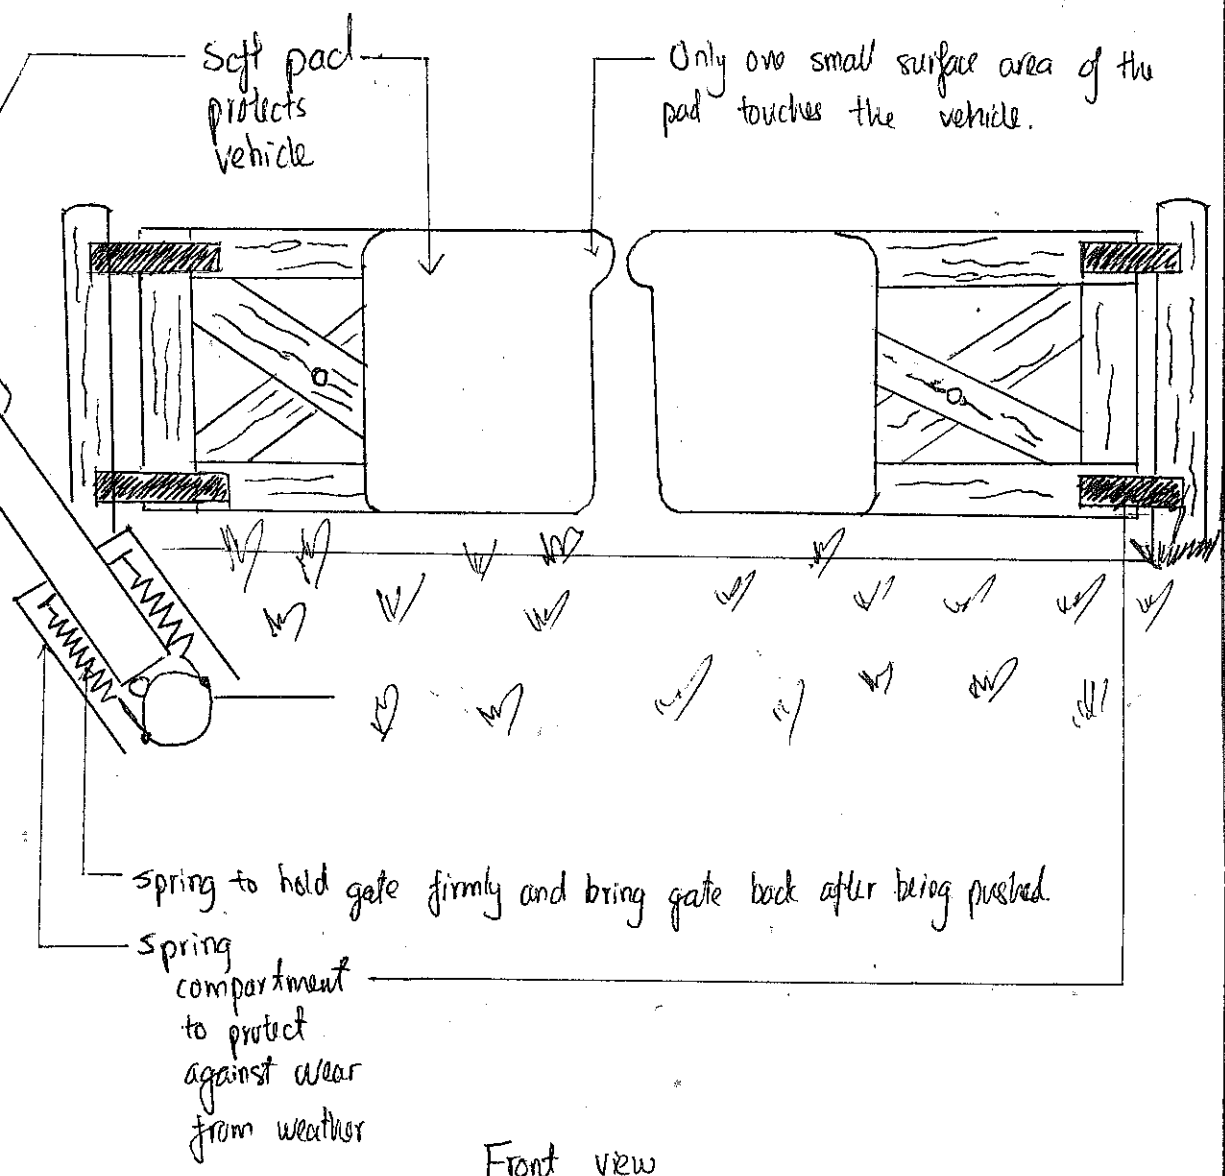 Soft pad
protects
vehicle
Only one small surface area of the
pad touches the vehicle.
spring to hold gate firmly and bring gate back after being pushed.
spring
compartment
to protect
against wear
from weather
Front view